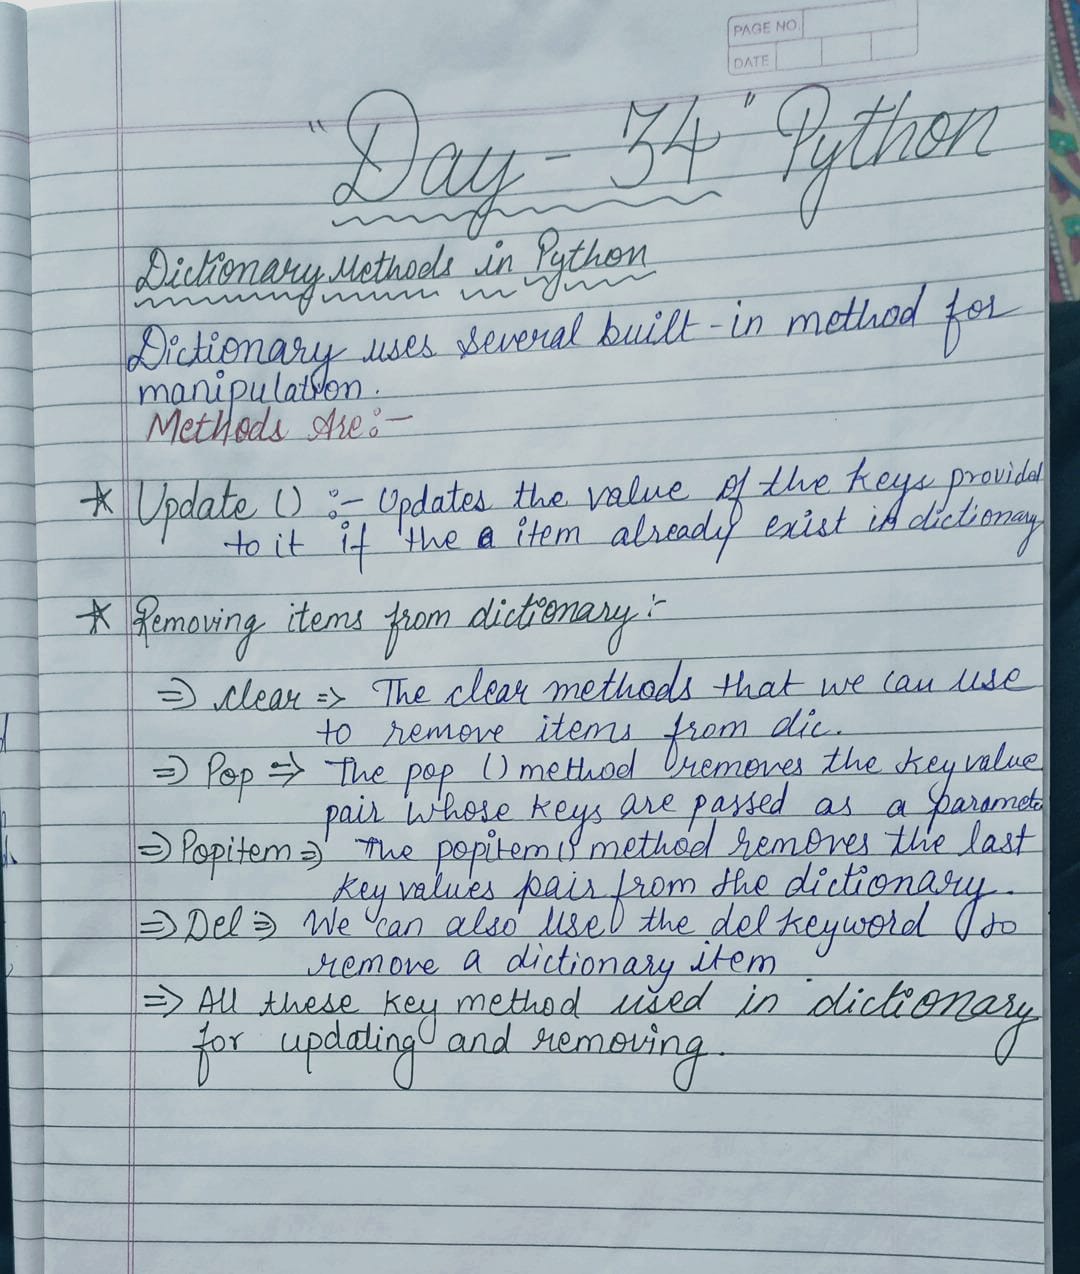 PAGE NO.
DATE
"Day - 34" Python
Dictionary Methods in Python
Dictionary uses several built-in method for
manipulation.
Methods Are:-
* Update () :- Updates the value of the keys provided
to it if the a item already exist in dictionary
* Removing items from dictionary:-
=> clear => The clear methods that we can use
to remove items from dic.
=> Pop => The pop () method removes the key value
pair whose keys are passed as a paramete
=> Popitem => The popitem() method removes the last
key values pair from the dictionary.
=> Del => We can also use the del keyword to
remove a dictionary item
=> All these key method used in dictionary
for updating and removing.